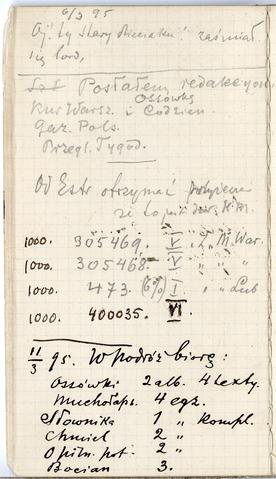 6/3 95
Oj! ty stary
się lord,
Posłałem redakcyom
Ossówkę
Kur Warsz. i Codzien.
Gaz. Pols.
Przegl. Tygod.
Od Estr otrzymać
1000. 305469. V M. War.
1000. 305468. V " "
1000. 473. (6%) I " " Lub
1000. 400035. VI
11/3 95. W podróż biorę:
Ossówki 2 alb. 4 texty.
Muchołaps. 4 egz.
Słownika 1 " kompl.
Chmiel 2 "
Opiln. pot. 2 "
Bocian 3.